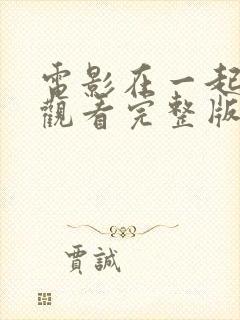 電影在一起
觀看完整版
賈誠